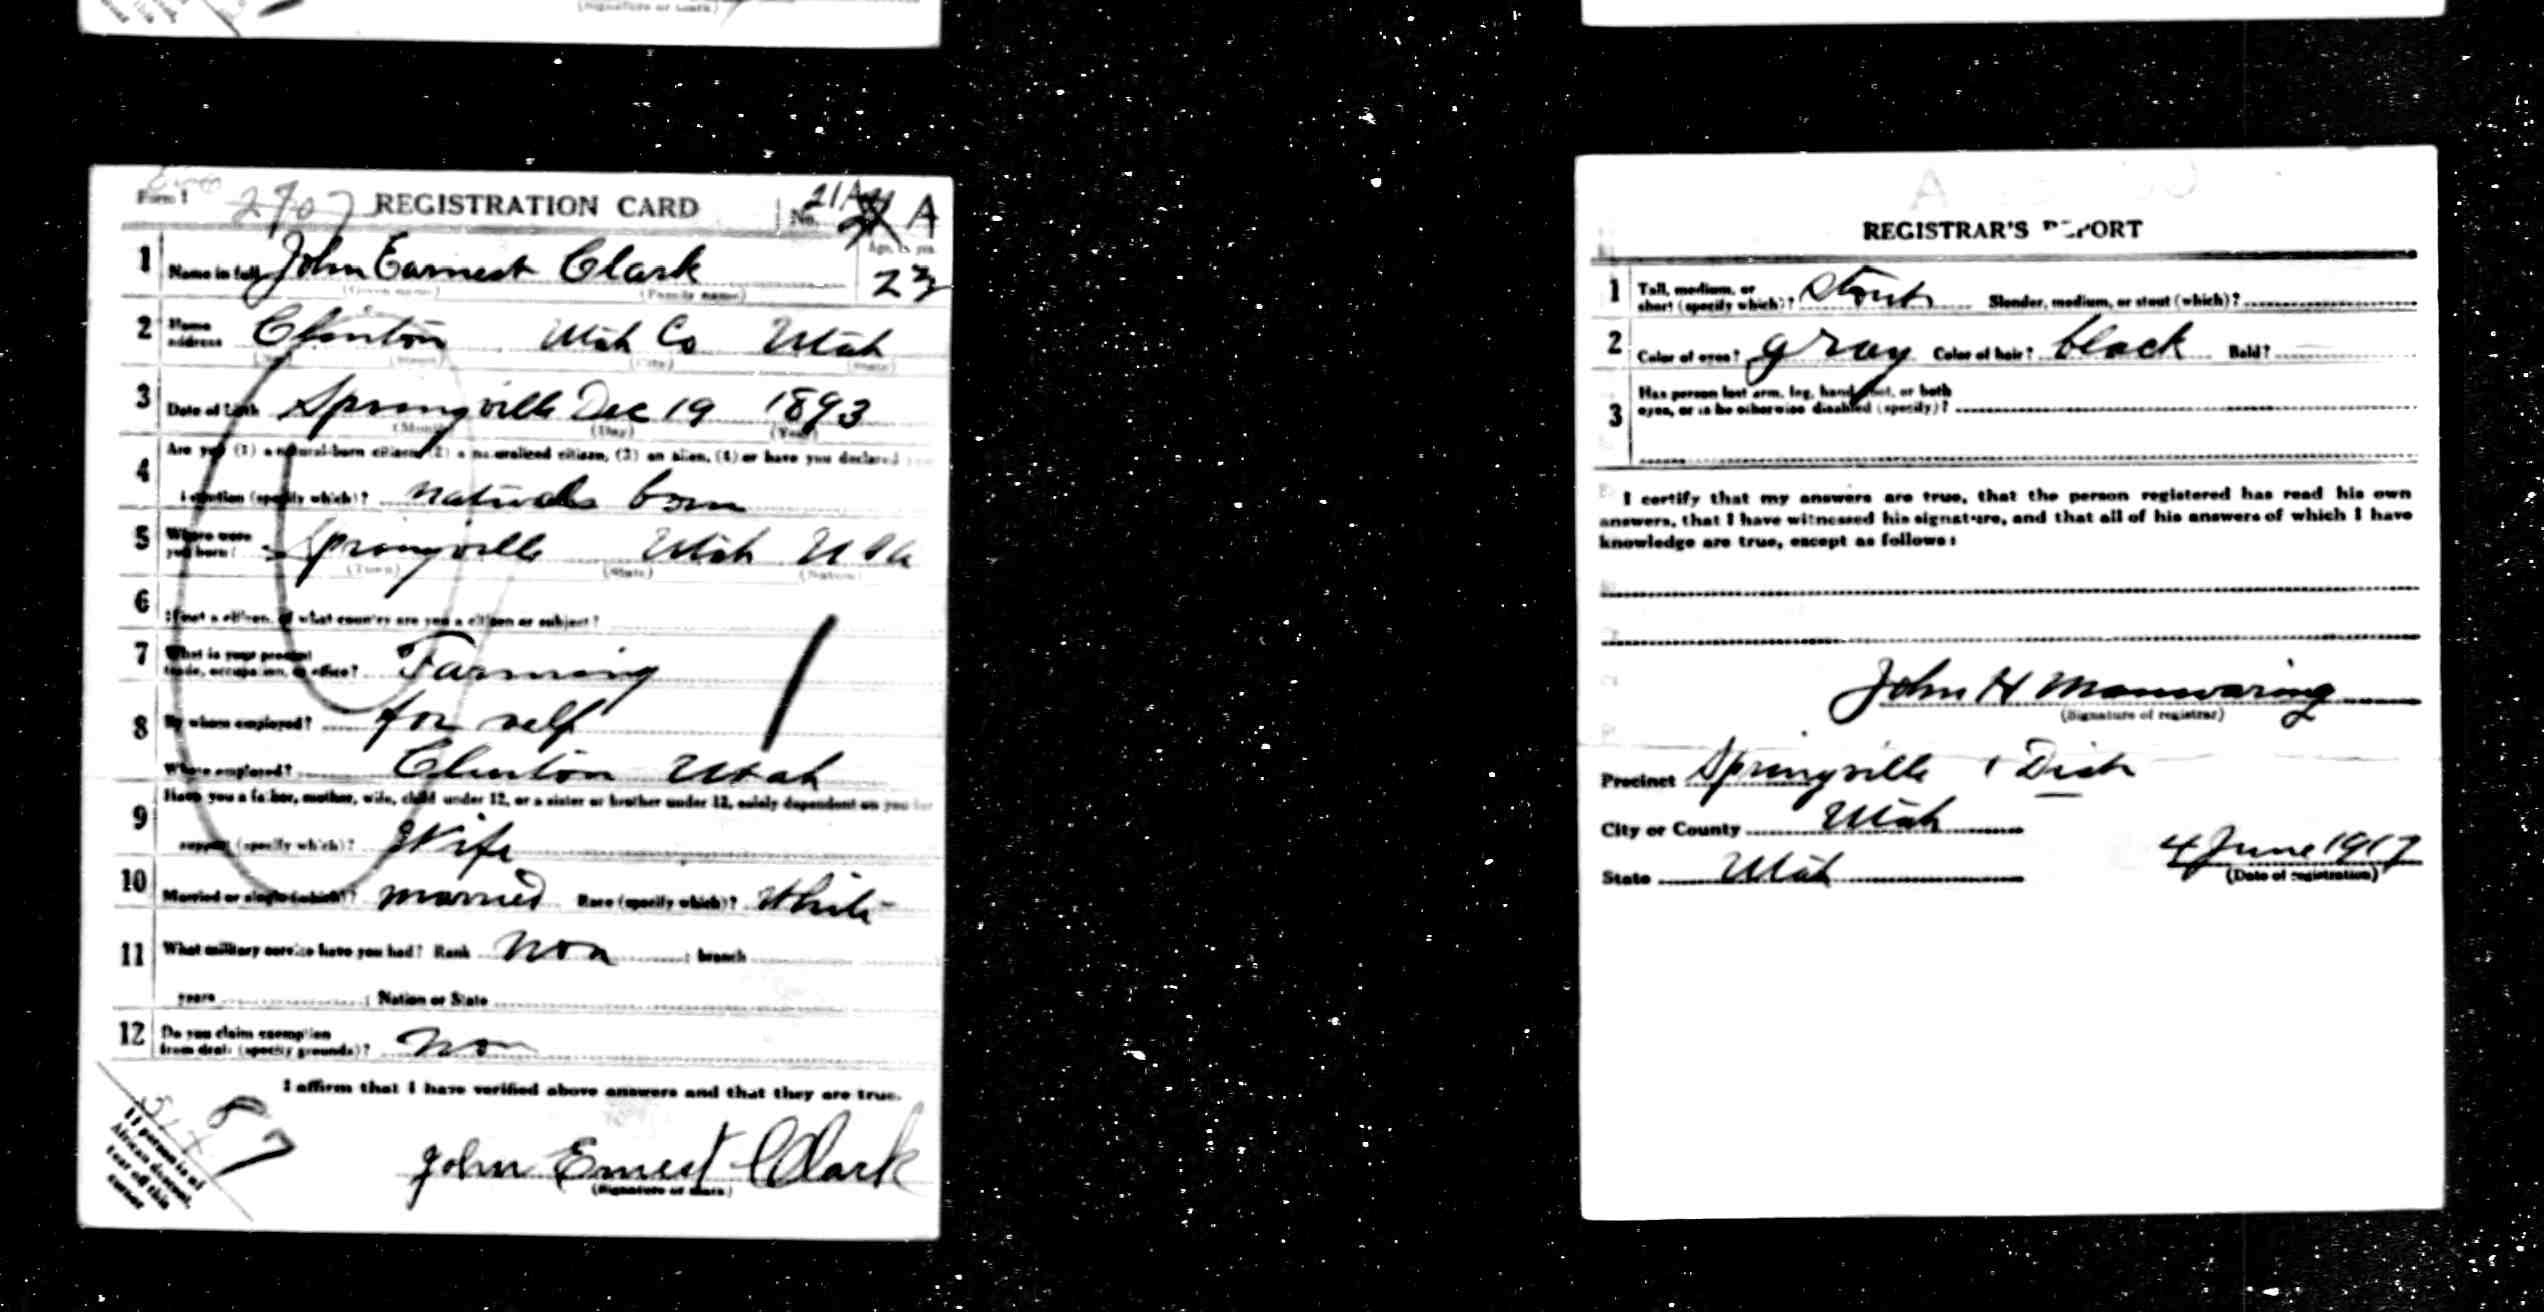 (Signature or mark)
Form 1 2907 REGISTRATION CARD No. 21 A
Age, in yrs.
1 Name in full John Earnest Clark 23
(Given name) (Family name)
2 Home address Clinton Utah Co Utah
(No.) (Street) (City) (State)
3 Date of birth Springville Dec 19 1893
(Month) (Day) (Year)
4 Are you (1) a natural-born citizen, (2) a naturalized citizen, (3) an alien, (4) or have you declared your
intention (specify which)? naturals born
5 Where were you born? Springville Utah USA
(Town) (State) (Nation)
6 If not a citizen, of what country are you a citizen or subject?
7 What is your present trade, occupation, or office? Farming
8 By whom employed? for self
Where employed? Clinton Utah
9 Have you a father, mother, wife, child under 12, or a sister or brother under 12, solely dependent on you for
support (specify which)? Wife
10 Married or single (which)? married Race (specify which)? White
11 What military service have you had? Rank Non ; branch
years ; Nation or State
12 Do you claim exemption from draft (specify grounds)? Non
I affirm that I have verified above answers and that they are true.
John Ernest Clark
(Signature or mark)
If person is of
African descent,
tear off this
corner
87
REGISTRAR'S REPORT
1 Tall, medium, or short (specify which)? Stout Slender, medium, or stout (which)?
2 Color of eyes? gray Color of hair? black Bald?
3 Has person lost arm, leg, hand, foot, or both
eyes, or is he otherwise disabled (specify)?
I certify that my answers are true, that the person registered has read his own
answers, that I have witnessed his signature, and that all of his answers of which I have
knowledge are true, except as follows:
John H Manwaring
(Signature of registrar)
Precinct Springville 1 Dist
City or County Utah
State Utah 4 June 1917
(Date of registration)